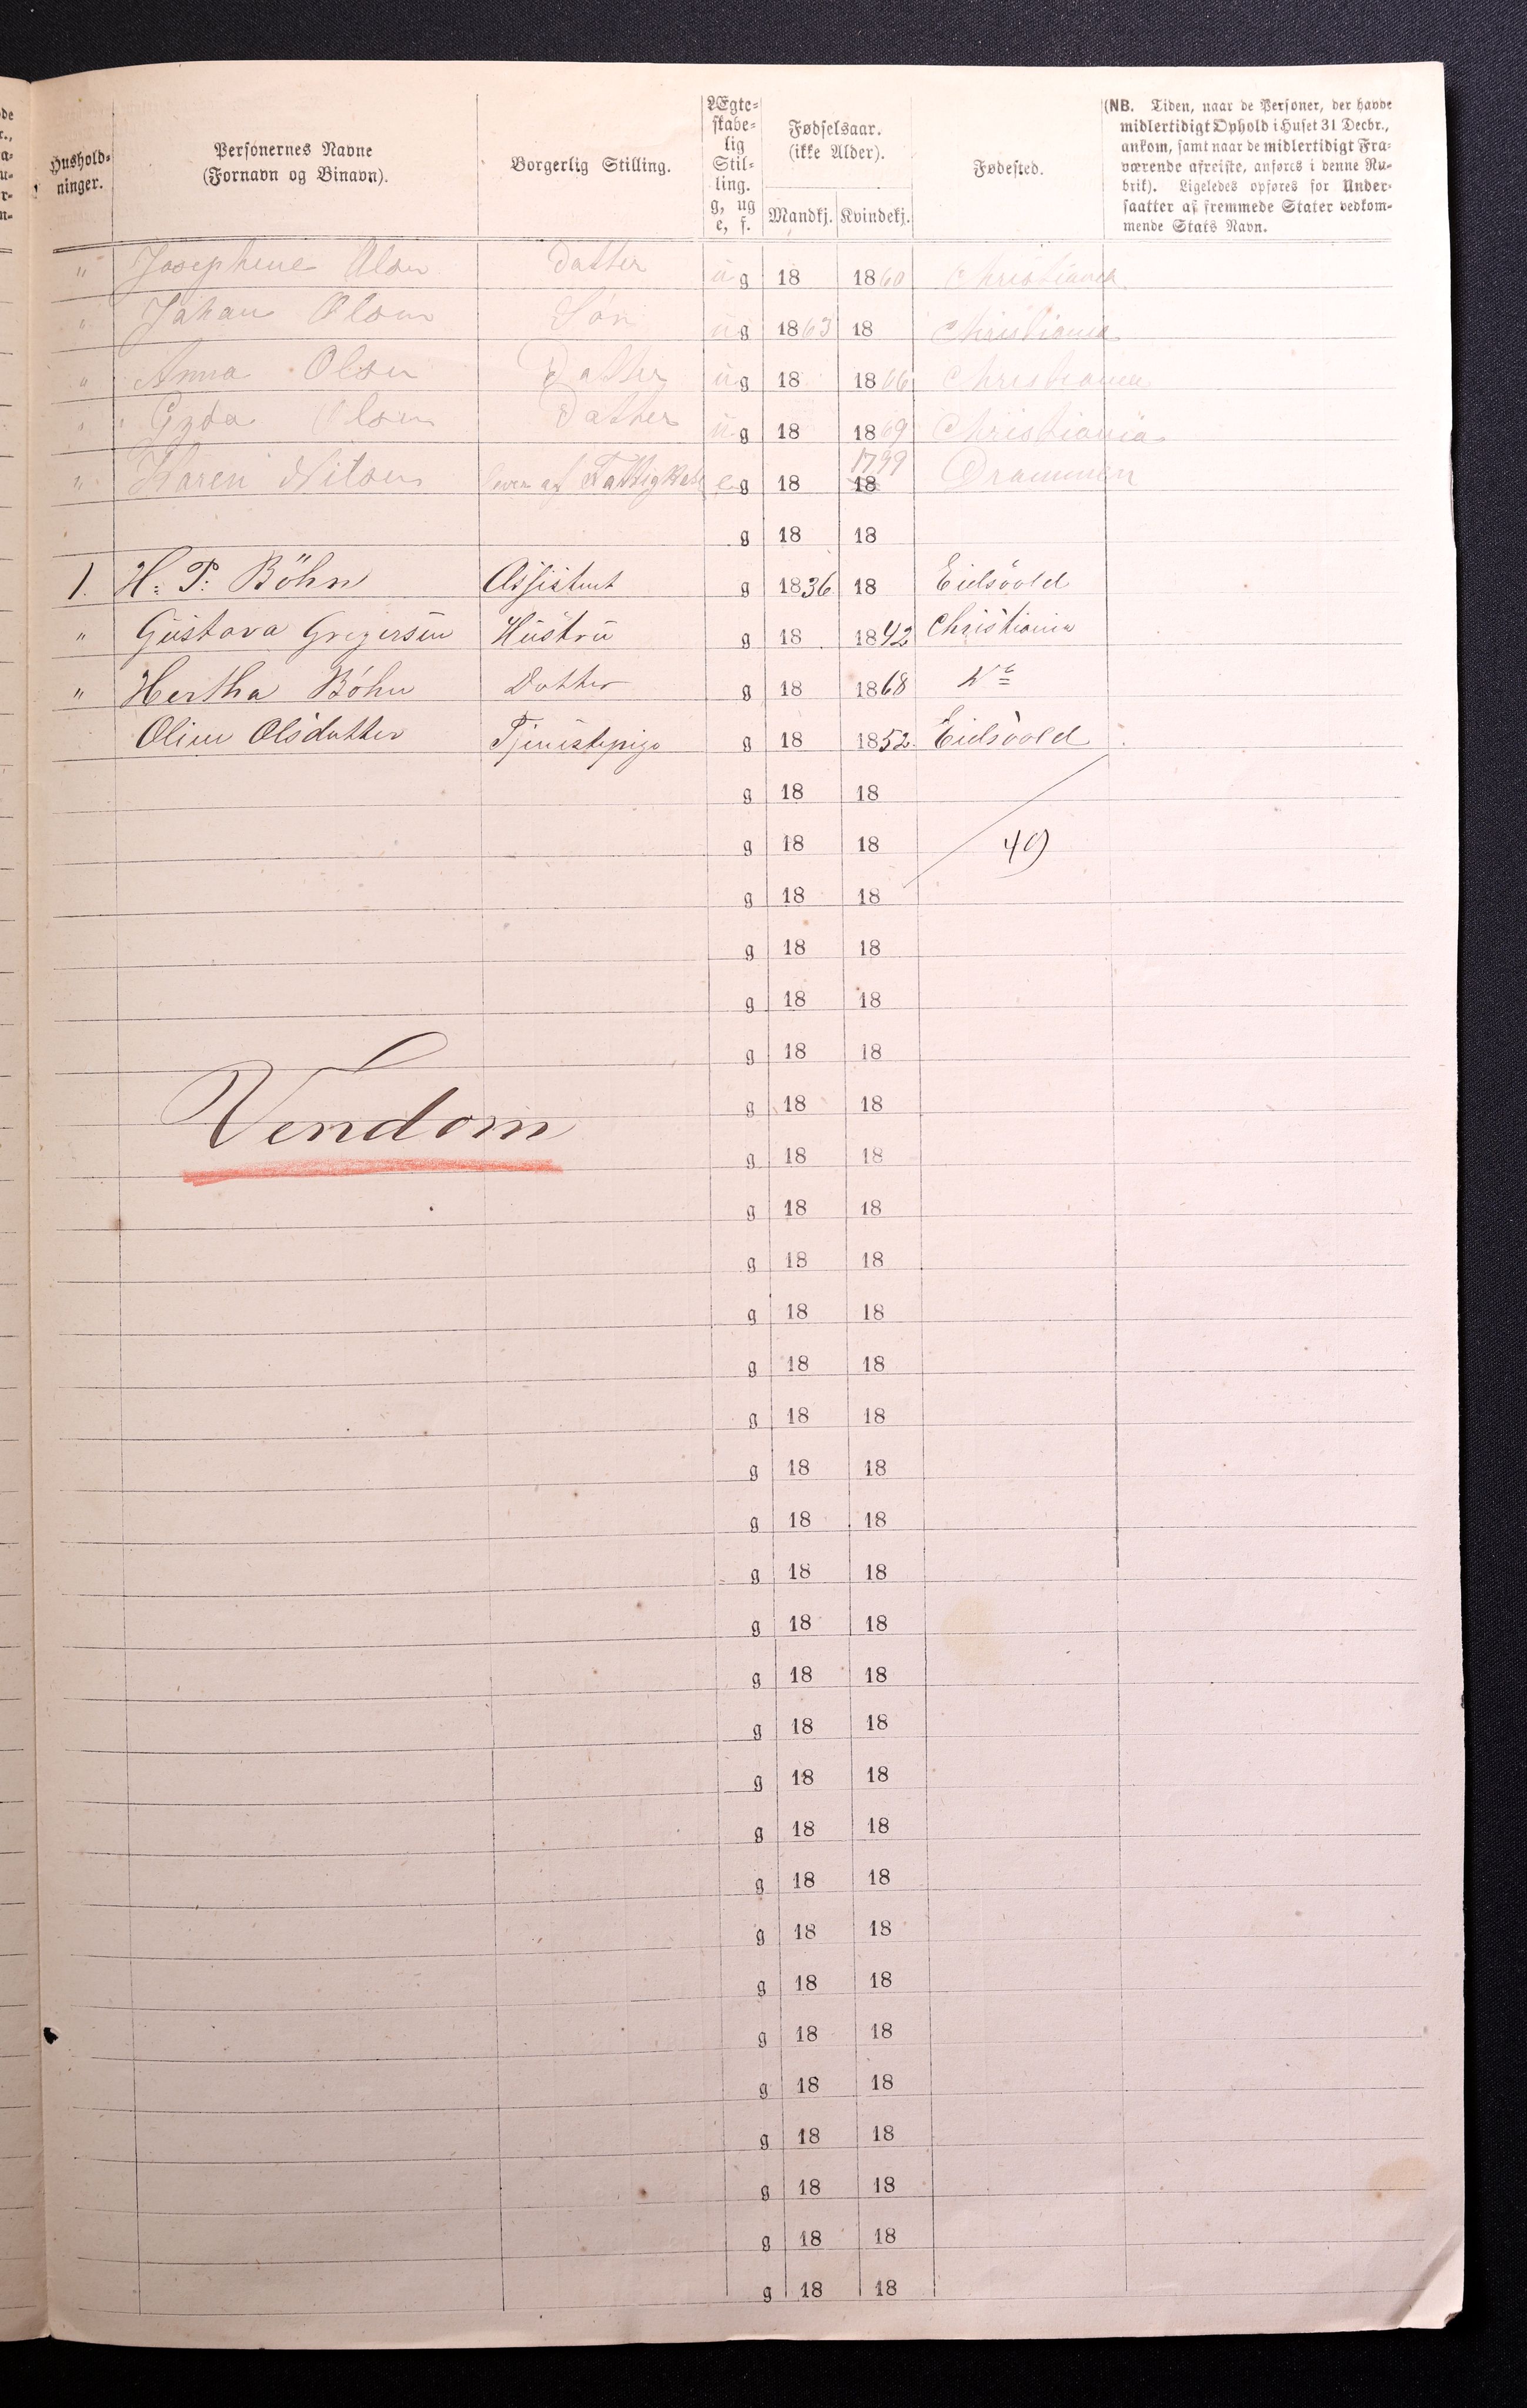 Hushold-
ninger.
Personernes Navne
(Fornavn og Binavn).
Borgerlig Stilling.
Ægte-
skabe-
lig
Stil-
ling.
g, ug
e, f.
Fødselsaar.
(ikke Alder).
Mandkj. Kvindekj.
Fødested.
(NB. Tiden, naar de Personer, der havde
midlertidigt Ophold i Huset 31 Decbr.,
ankom, samt naar de midlertidigt Fra-
værende afreiste, anføres i denne Ru-
brik). Ligeledes opføres for Under-
saatter af fremmede Stater vedkom-
mende Stats Navn.
" Josephine Olsen Datter ug 18 1860 Christiania
" Johan Olsen Søn ug 1863 18 Christiania
" Anna Olsen Datter ug 18 1866 Christiania
" Gyda Olsen Datter ug 18 1869 Christiania
" Karen Nilsen af Fattigkas eg 18 1799 18 Drammen
g 18 18
1. H. P. Böhn Assistent g 1836 18 Eidsvold
" Gustava Gregersen Hustru g 18 1842 Christiania
" Hertha Böhn Datter g 18 1868 Do
Oline Olsdatter Tjenestepige g 18 1852 Eidsvold
g 18 18
g 18 18 49
g 18 18
g 18 18
g 18 18
g 18 18
Vendom g 18 18
g 18 18
g 18 18
g 18 18
g 18 18
g 18 18
g 18 18
g 18 18
g 18 18
g 18 18
g 18 18
g 18 18
g 18 18
g 18 18
g 18 18
g 18 18
g 18 18
g 18 18
g 18 18
g 18 18
g 18 18
g 18 18
g 18 18
g 18 18